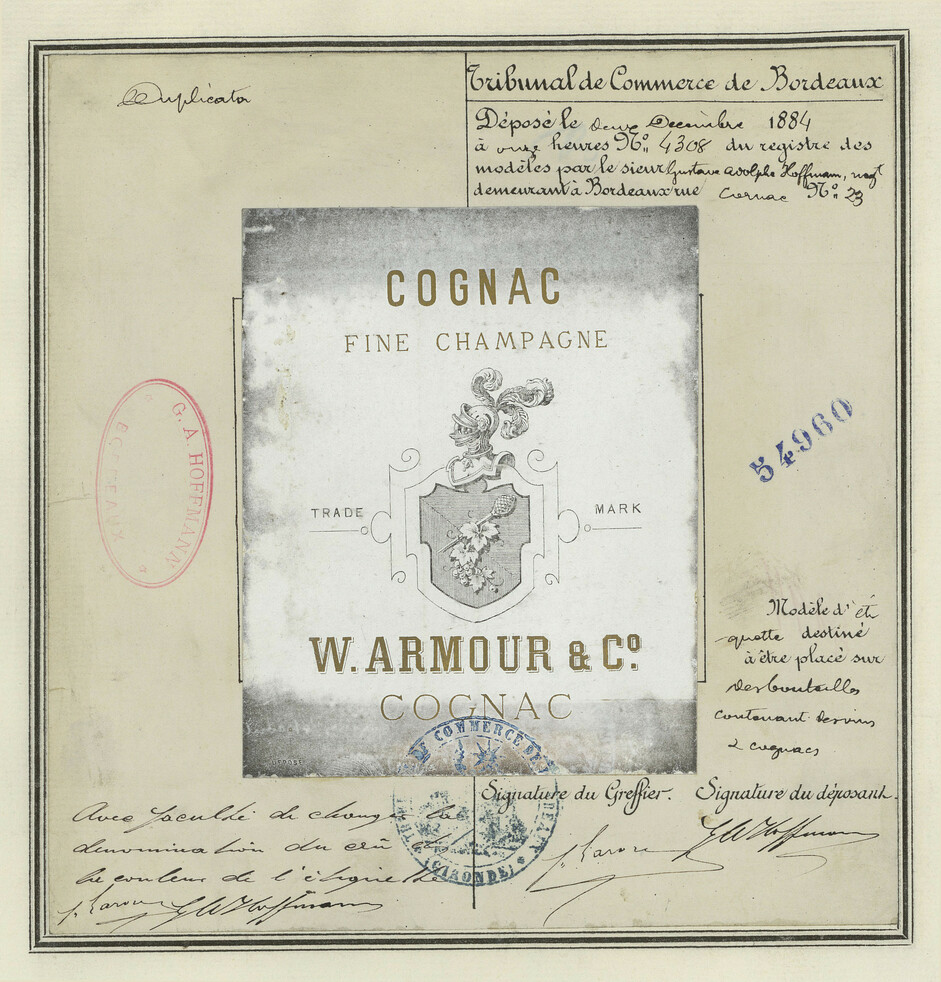 Duplicata
Tribunal de Commerce de Bordeaux
Déposé le deux Decembre 1884
à onze heures No. 4308 du registre des
modèles par le sieur Gustave Adolphe Hoffmann, negt
demeurant à Bordeaux rue Cornac No. 23
COGNAC
FINE CHAMPAGNE
TRADE MARK
W. ARMOUR & Co.
COGNAC
DÉPOSÉ
G. A. HOFFMANN
BORDEAUX
54960
Modèle d'éti
quette destiné
à être placé sur
des bouteilles
contenant des vins
& cognacs
DE COMMERCE DE BORDEAUX
(GIRONDE)
Signature du Greffier. Signature du déposant.
GAHoffmann
Avec faculté de changer la
denomination du crû
la couleur de l'étiquette
GAHoffmann